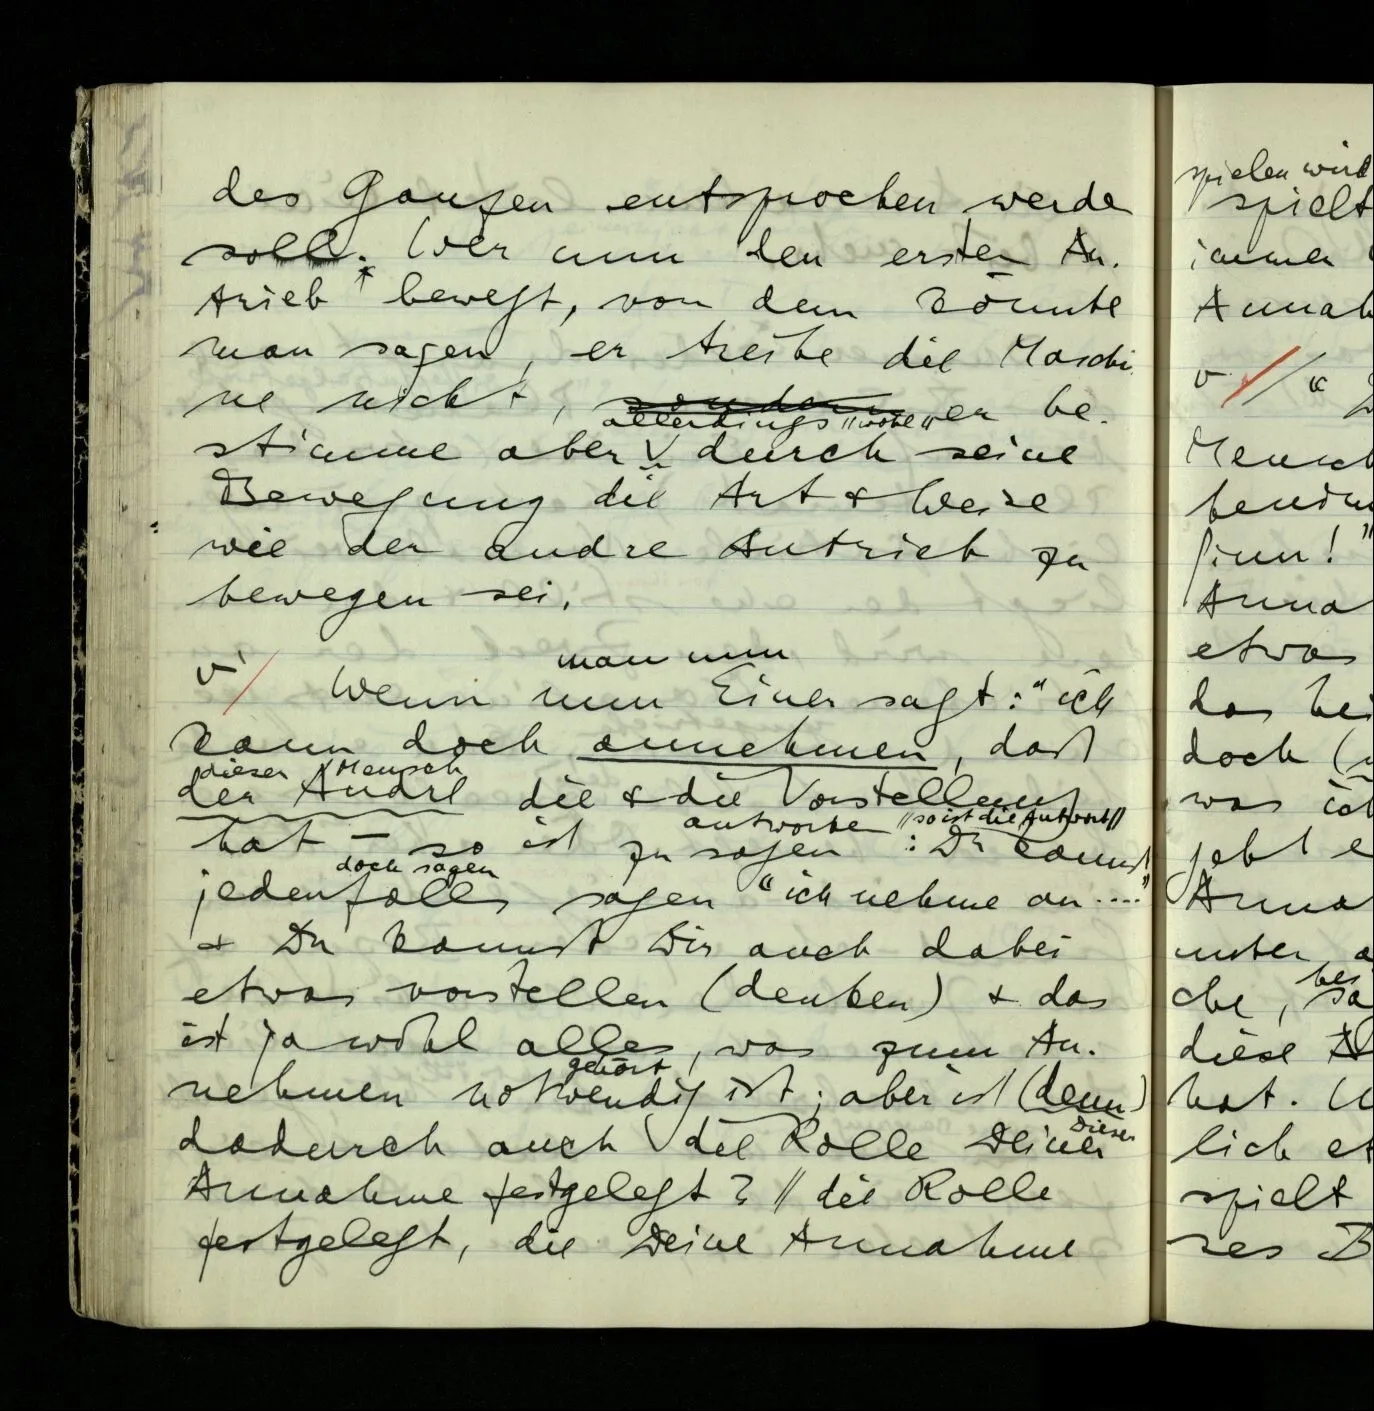 des Ganzen entsprochen werde
soll. Wer nun den ersten An-
trieb bewegt, von dem könnte
man sagen, er treibe die Maschi
ne nicht, sondern er be-
allerdings "wohl"
stimme aber durch seine
Bewegung die Art & Weise
wie der andre Antrieb zu
bewegen sei.
man nun
Wenn nun Einer sagt: "ich
kann doch annehmen, daß
dieser Mensch
der Andre die & die Vorstellung
hat – so ist zu sagen : Du kannst
antworten // so ist die Antwort //
doch sagen
jedenfalls sagen "ich nehme an ...."
& Du kannst Dir auch dabei
etwas vorstellen (denken) & das
ist ja wohl alles, was zum An-
gehört
nehmen notwendig ist; aber ist (denn)
dadurch auch die Rolle Deiner
Dieser
Annahme festgelegt? // die Rolle
festgelegt, die Deine Annahme
spielen wird
spielt
immer
Annah
" D
Mensch
ginn! "
Anna
etwas
das hei
doch (
was ich
jetzt e
Anna
unter a
che, sa
bei
diese
hat. U
lich et
spielt
ses B